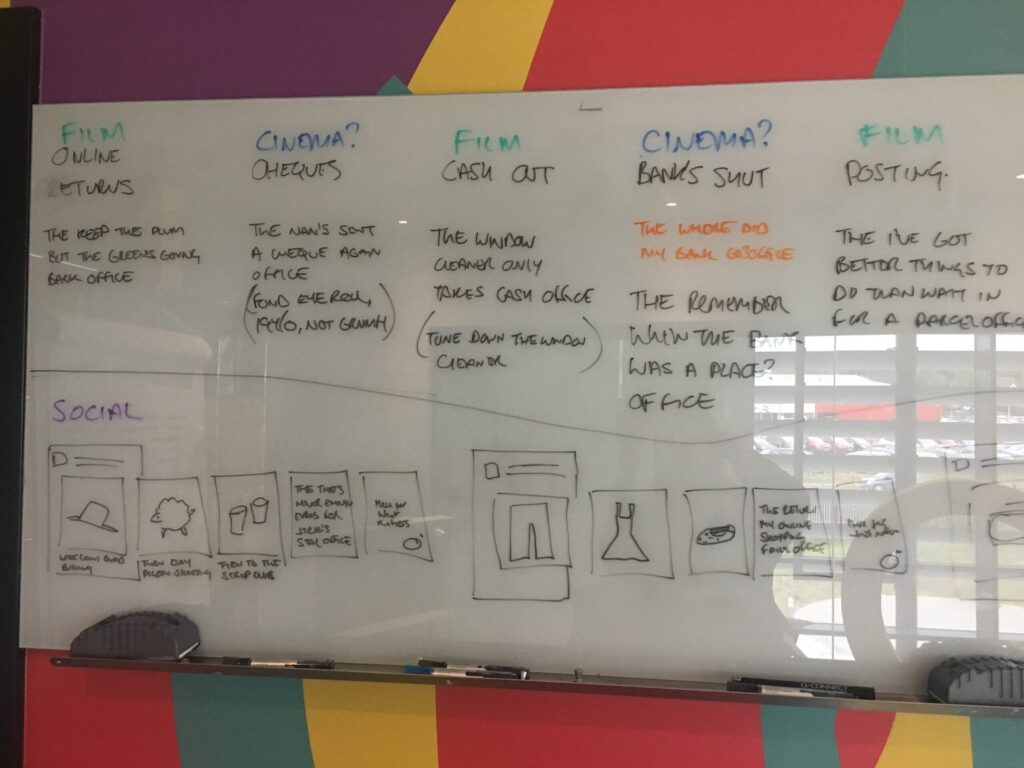 FILM
ONLINE
RETURNS
THE KEEP THE PLUM
BUT THE GREENS GOING
BACK OFFICE
CINEMA?
CHEQUES
THE NAN'S SENT
A CHEQUE AGAIN
OFFICE
(FOND EYE ROLL,
NOT GRUMPY)
FILM
CASH OUT
THE WINDOW
CLEANER ONLY
TAKES CASH OFFICE
(TONE DOWN THE WINDOW
CLEANER)
CINEMA?
BANKS SHUT
THE WHERE DID
MY BANK GO? OFFICE
THE REMEMBER
WHEN THE BANK
WAS A PLACE?
OFFICE
FILM
POSTING.
THE I'VE GOT
BETTER THINGS TO
DO THAN WAIT IN
FOR A PARCEL OFFICE
SOCIAL
THEN DAY
PIGEON SHOOTING
THEN TO THE
STRIP CLUB
THE THAT'S
EVANS FOR
STEVE'S
STAG OFFICE
More for
what
matters
THE RETURN
MY ONLINE
SHOPPING
FAILS OFFICE
Q-CONNECT